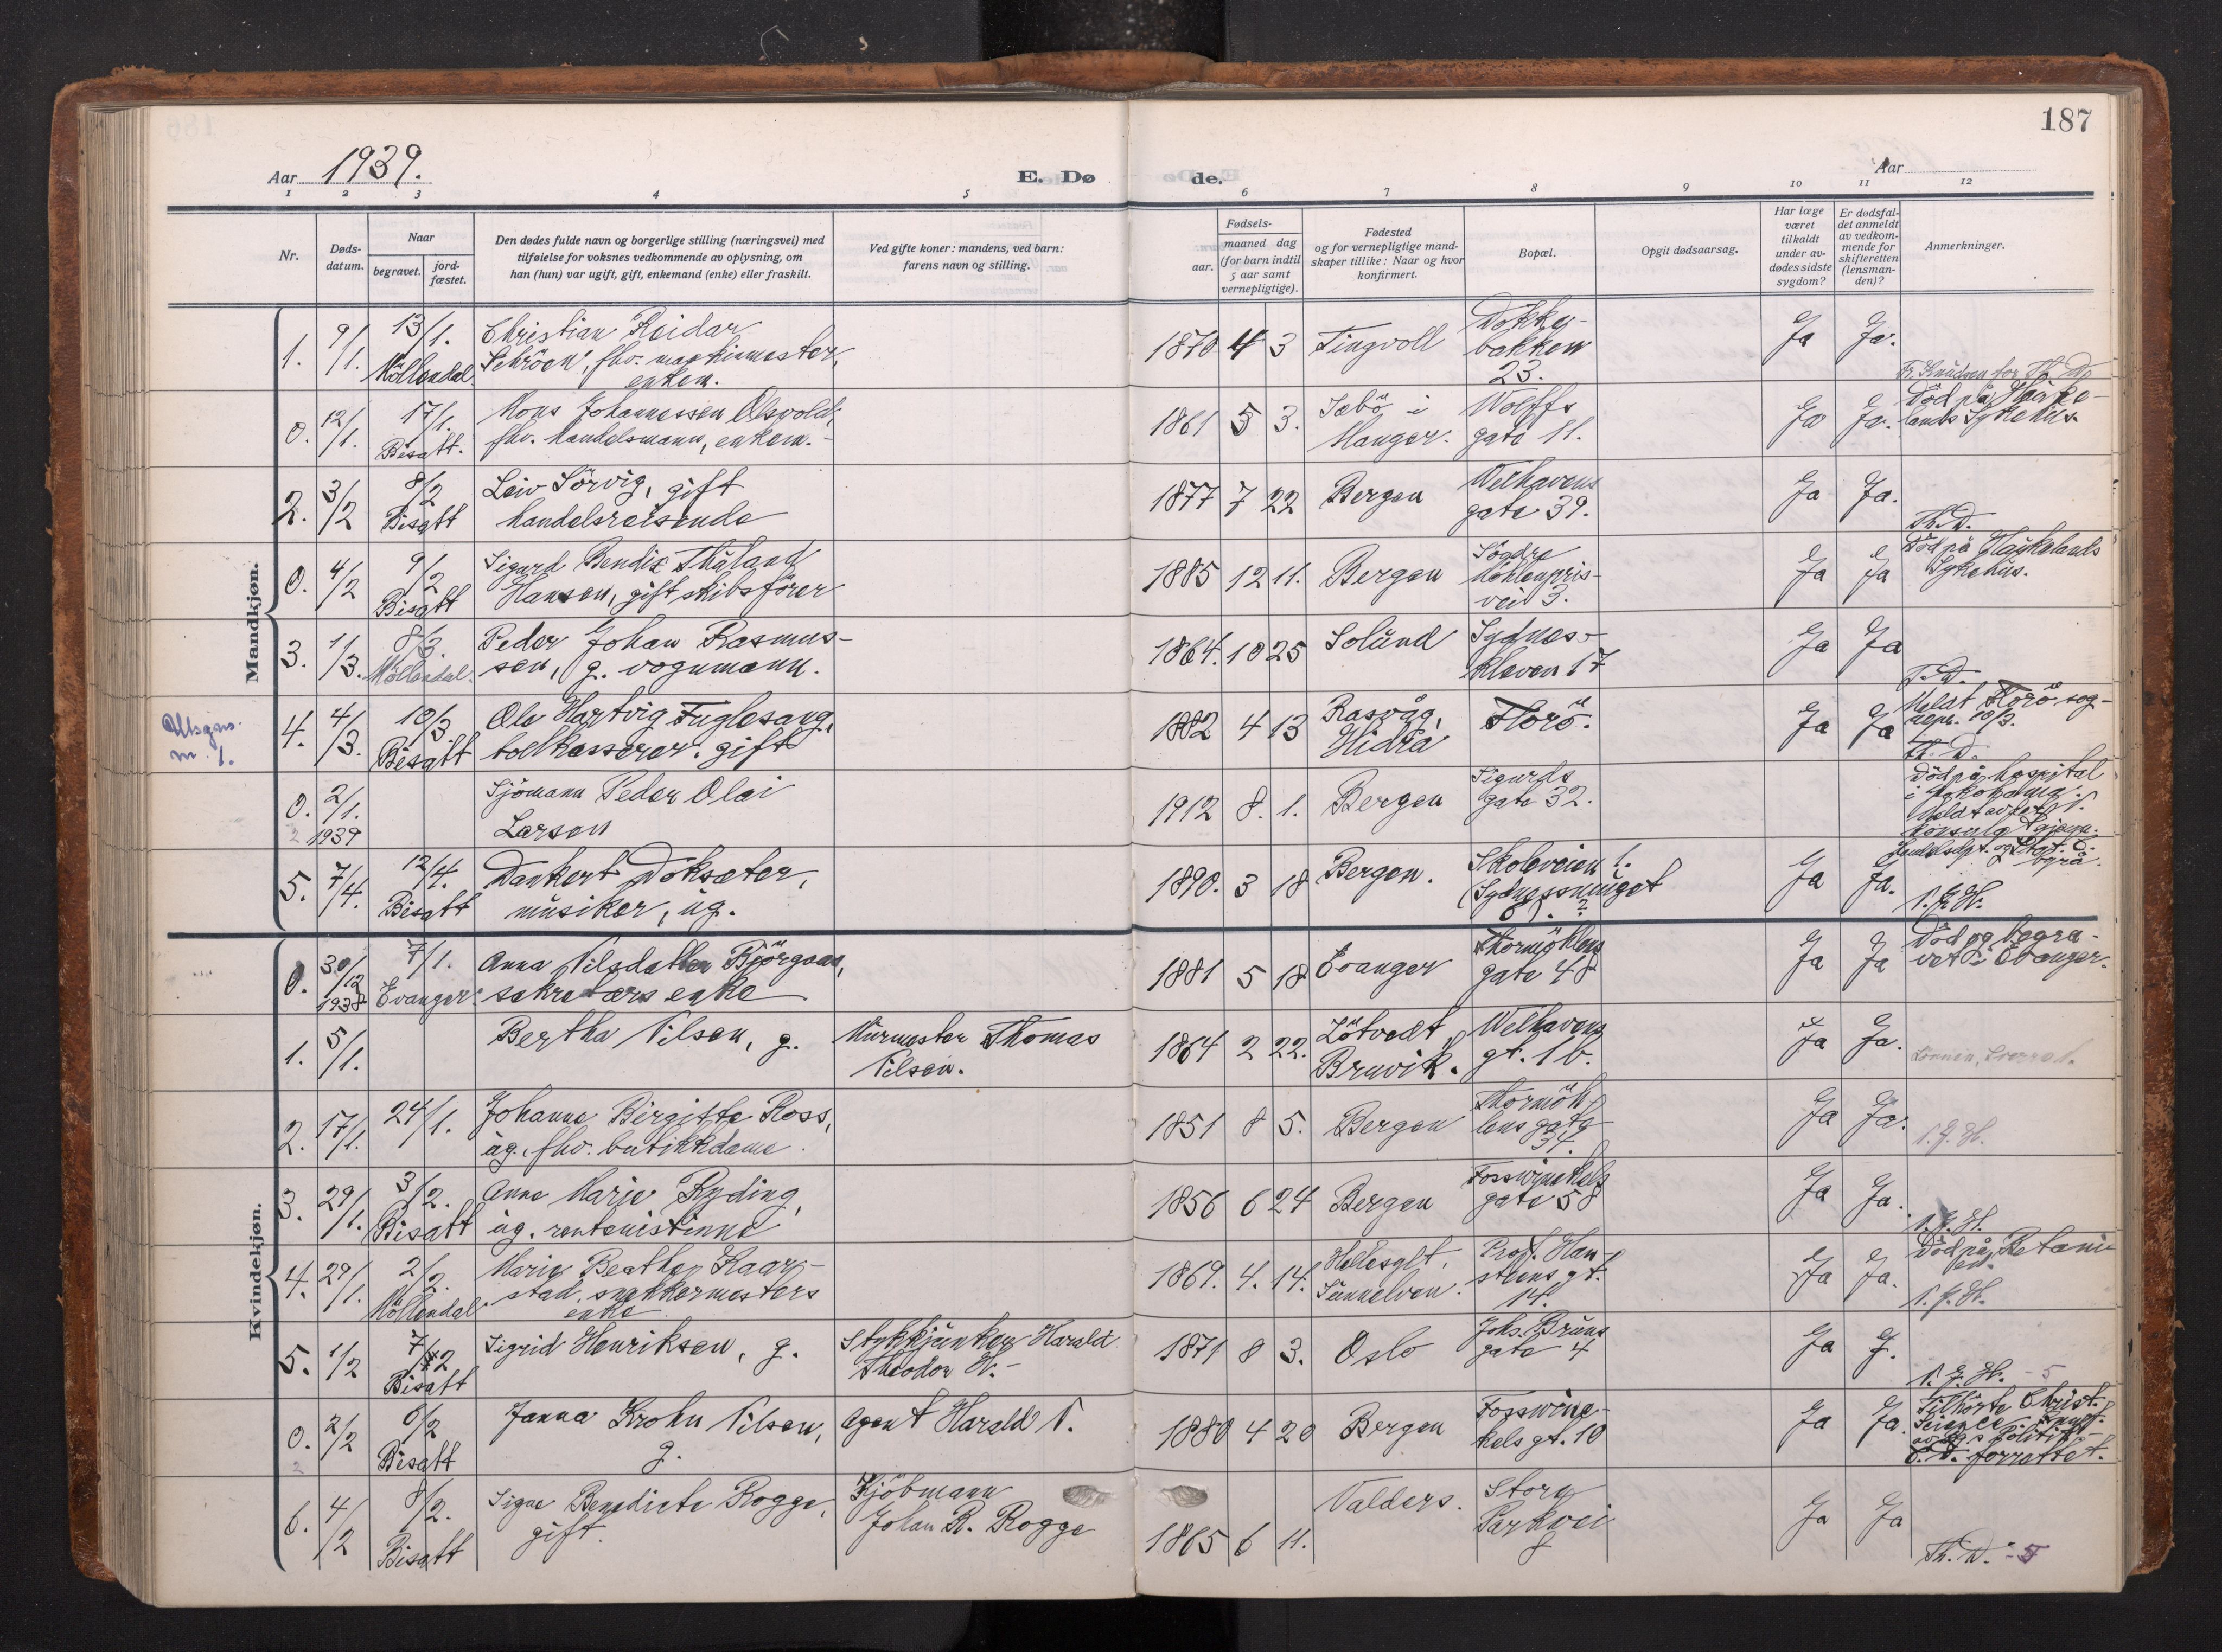 187
Aar 1939.
E. Dø de.
Aar
1 2 3 4 5 6 7 8 9 10 11 12
Nr.
Døds-
datum.
Naar
begravet.
jord-
fæstet.
Den dødes fulde navn og borgerlige stilling (næringsvei) med
tilføielse for voksnes vedkommende av oplysning, om
han (hun) var ugift, gift, enkemand (enke) eller fraskilt.
Ved gifte koner: mandens, ved barn:
farens navn og stilling.
Fødsels-
aar.
maaned dag
(for barn indtil
5 aar samt
vernepligtige).
Fødested
og for vernepligtige mand-
skaper tillike: Naar og hvor
konfirmert.
Bopæl.
Opgit dødsaarsag.
Har læge
været
tilkaldt
under av-
dødes sidste
sygdom?
Er dødsfal-
det anmeldt
av vedkom-
mende for
skifteretten
(lensman-
den)?
Anmerkninger.
Mandkjøn.
1. 9/1. 13/1. Christian Reidar 1870 4 3 Tingvoll Dokke- Ja Ja.
Möllendal Schröen, fhv. maskinmester, bakken
enkem. 23.
0. 12/1. 17/1. Mons Johannessen Olsvold, 1861 5 3. Sæbö i Wolffs Ja Ja. Död på Hauke-
Bisatt. fhv. handelsmann, enkem. Manger. gate 11. lands Sykehus.
2. 3/2 8/2 Leiv Sörvig, gift 1877 7 22 Bergen Welhavens Ja Ja.
Bisatt handelsreisende gate 39. Th. D.
0. 4/2 9/2 Sigurd Bendix Thuland 1885 12 11. Bergen Söndre Ja Ja Död på Haukelands
Bisatt Hansen, gift skibsförer Möhlenpris- Sykehus.
vei 3.
3. 1/3. 8/3. Peder Johan Rasmus- 1864. 10 25 Solund Sydnes- Ja Ja
Möllendal. sen, g. vognmann. kleven 17
Utsgns.
m. 1.
4. 4/3. 10/3 Ole Hartvig Fuglesang, 1882 4 13 Rasvåg, Florö. Ja Ja Meldt Florö sog-
Bisatt tollkasserer. gift Hidra nepr. 10/3.
Th. D.
0. 2/1. Sjömann Peder Olai 1912 8. 1. Bergen Sigurds Död på hospital
1939 Larsen gate 32. i Yokohama.
5. 7/4. 12/4. Dankert Doksæter, 1890. 3 18 Bergen. Skoleveien 1. Ja Ja.
Bisatt musiker, ug. (Sydnessmuget
6). ? N. J. H.
Kvindekjøn.
0. 30/12 7/1. Anna Nilsdatter Björgaas, 1881 5 18 Evanger Thormöhlens Ja Ja Död og begra-
1938 Evanger. sekretærs enke. gate 48 vet i Evanger.
1. 5/1. Bertha Nilsen, g. Murmester Thomas 1864 2 22. Lötvedt, Welhavens Ja Ja.
Nilsen. Bruvik. gt. 1b.
2. 17/1. 24/1. Johanne Birgitte Ross, 1851 8 5. Bergen Thormöh- Ja Ja.
ug. fhv. butikkdame. lens gate N. J. H.
34.
3. 29/1. 3/2. Anne Marie Ryding, 1856 6 24 Bergen Fosswinckels Ja Ja.
Bisatt ug. rentenistinne gate 58 N. J. H.
4. 29/1. 2/2. Marie Beathe Kaar- 1869. 4. 14. Hellesylt, Prof. Han- Ja Ja. Död på Betanien.
Möllendal stad, snekkermesters Sunnelven. steens gt. N. J. H.
enke 14.
5. 1/2 7/2 Sigrid Henriksen, g. Stykkjunker Harald 1871 8 3. Oslo Johs. Bruns Ja J.
Bisatt Theodor H. gate 4 N. J. H. - 5
0. 2/2 6/2 Janna Krohn Nilsen, Agent Harald N. 1880 4 20 Bergen Fosswinc- Ja Ja. Tilhörte Christ.
Bisatt g. kels gt. 10 Science.
forrettet.
6. 4/2 8/2. Signe Benedicte Rogge, Kjöbmann 1865 6 11. Valders. Store Ja Ja
Bisatt gift. Johan R. Rogge Parkvei
Th. D. - 5